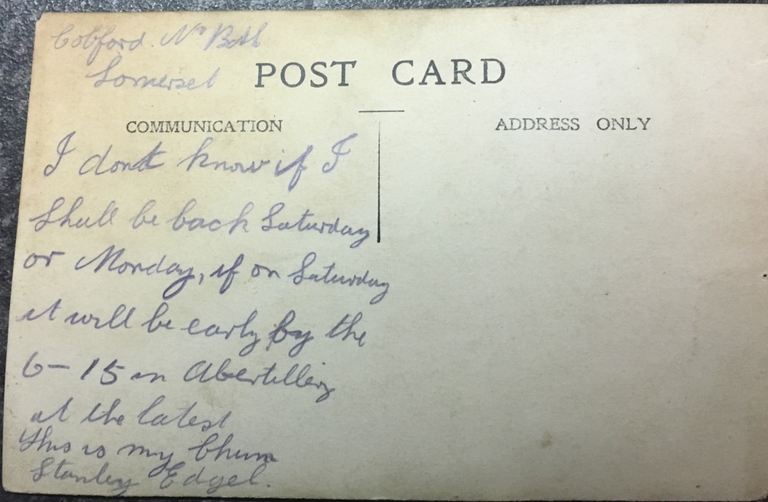 Cobford. Nr Bath
Somerset
POST CARD
COMMUNICATION
ADDRESS ONLY
I dont know if I
Shall be back Saturday
or Monday, if on Saturday
it will be early by the
6-15 in Abertillery
at the latest
this is my Chum
Stanley Edgel.